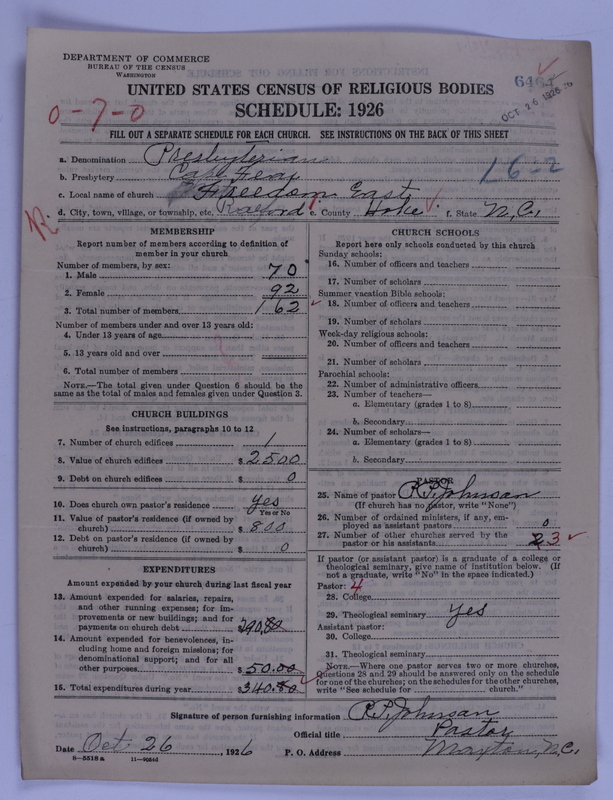 DEPARTMENT OF COMMERCE
BUREAU OF THE CENSUS
WASHINGTON
646
OCT 26 1926
UNITED STATES CENSUS OF RELIGIOUS BODIES
SCHEDULE: 1926
0-7-0
FILL OUT A SEPARATE SCHEDULE FOR EACH CHURCH. SEE INSTRUCTIONS ON THE BACK OF THIS SHEET
a. Denomination Presbyterian
b. Presbytery Cape Fear
16-2
c. Local name of church Freedom East
d. City, town, village, or township, etc. Raeford e. County Hoke f. State N.C.
MEMBERSHIP
Report number of members according to definition of
member in your church
Number of members, by sex:
1. Male 70
2. Female 92
3. Total number of members 162
Number of members under and over 13 years old:
4. Under 13 years of age
5. 13 years old and over
6. Total number of members
NOTE.—The total given under Question 6 should be the
same as the total of males and females given under Question 3.
CHURCH BUILDINGS
See instructions, paragraphs 10 to 12
7. Number of church edifices 1
8. Value of church edifices $2500
9. Debt on church edifices $0
10. Does church own pastor's residence yes
Yes or No
11. Value of pastor's residence (if owned by
church) $800
12. Debt on pastor's residence (if owned by
church) $0
EXPENDITURES
Amount expended by your church during last fiscal year
13. Amount expended for salaries, repairs,
and other running expenses; for im-
provements or new buildings; and for
payments on church debt 290.80
14. Amount expended for benevolences, in-
cluding home and foreign missions; for
denominational support; and for all
other purposes $50.00
15. Total expenditures during year $340.80
CHURCH SCHOOLS
Report here only schools conducted by this church
Sunday schools:
16. Number of officers and teachers
17. Number of scholars
Summer vacation Bible schools:
18. Number of officers and teachers
19. Number of scholars
Week-day religious schools:
20. Number of officers and teachers
21. Number of scholars
Parochial schools:
22. Number of administrative officers
23. Number of teachers—
a. Elementary (grades 1 to 8)
b. Secondary
24. Number of scholars—
a. Elementary (grades 1 to 8)
b. Secondary
PASTOR
25. Name of pastor R. P. Johnson
(If church has no pastor, write "None")
26. Number of ordained ministers, if any, em-
ployed as assistant pastors 0
27. Number of other churches served by the
pastor or his assistants 3
If pastor (or assistant pastor) is a graduate of a college or
theological seminary, give name of institution below. (If
not a graduate, write "No" in the space indicated.)
Pastor: 4
28. College
29. Theological seminary Yes
Assistant pastor:
30. College
31. Theological seminary
NOTE.—Where one pastor serves two or more churches,
Questions 28 and 29 should be answered only on the schedule
for one of the churches; on the schedules for the other churches,
write "See schedule for church."
Signature of person furnishing information R. P. Johnson
Official title Pastor
Date Oct 26, 1926 P. O. Address Maxton, N.C.
8-5518 a